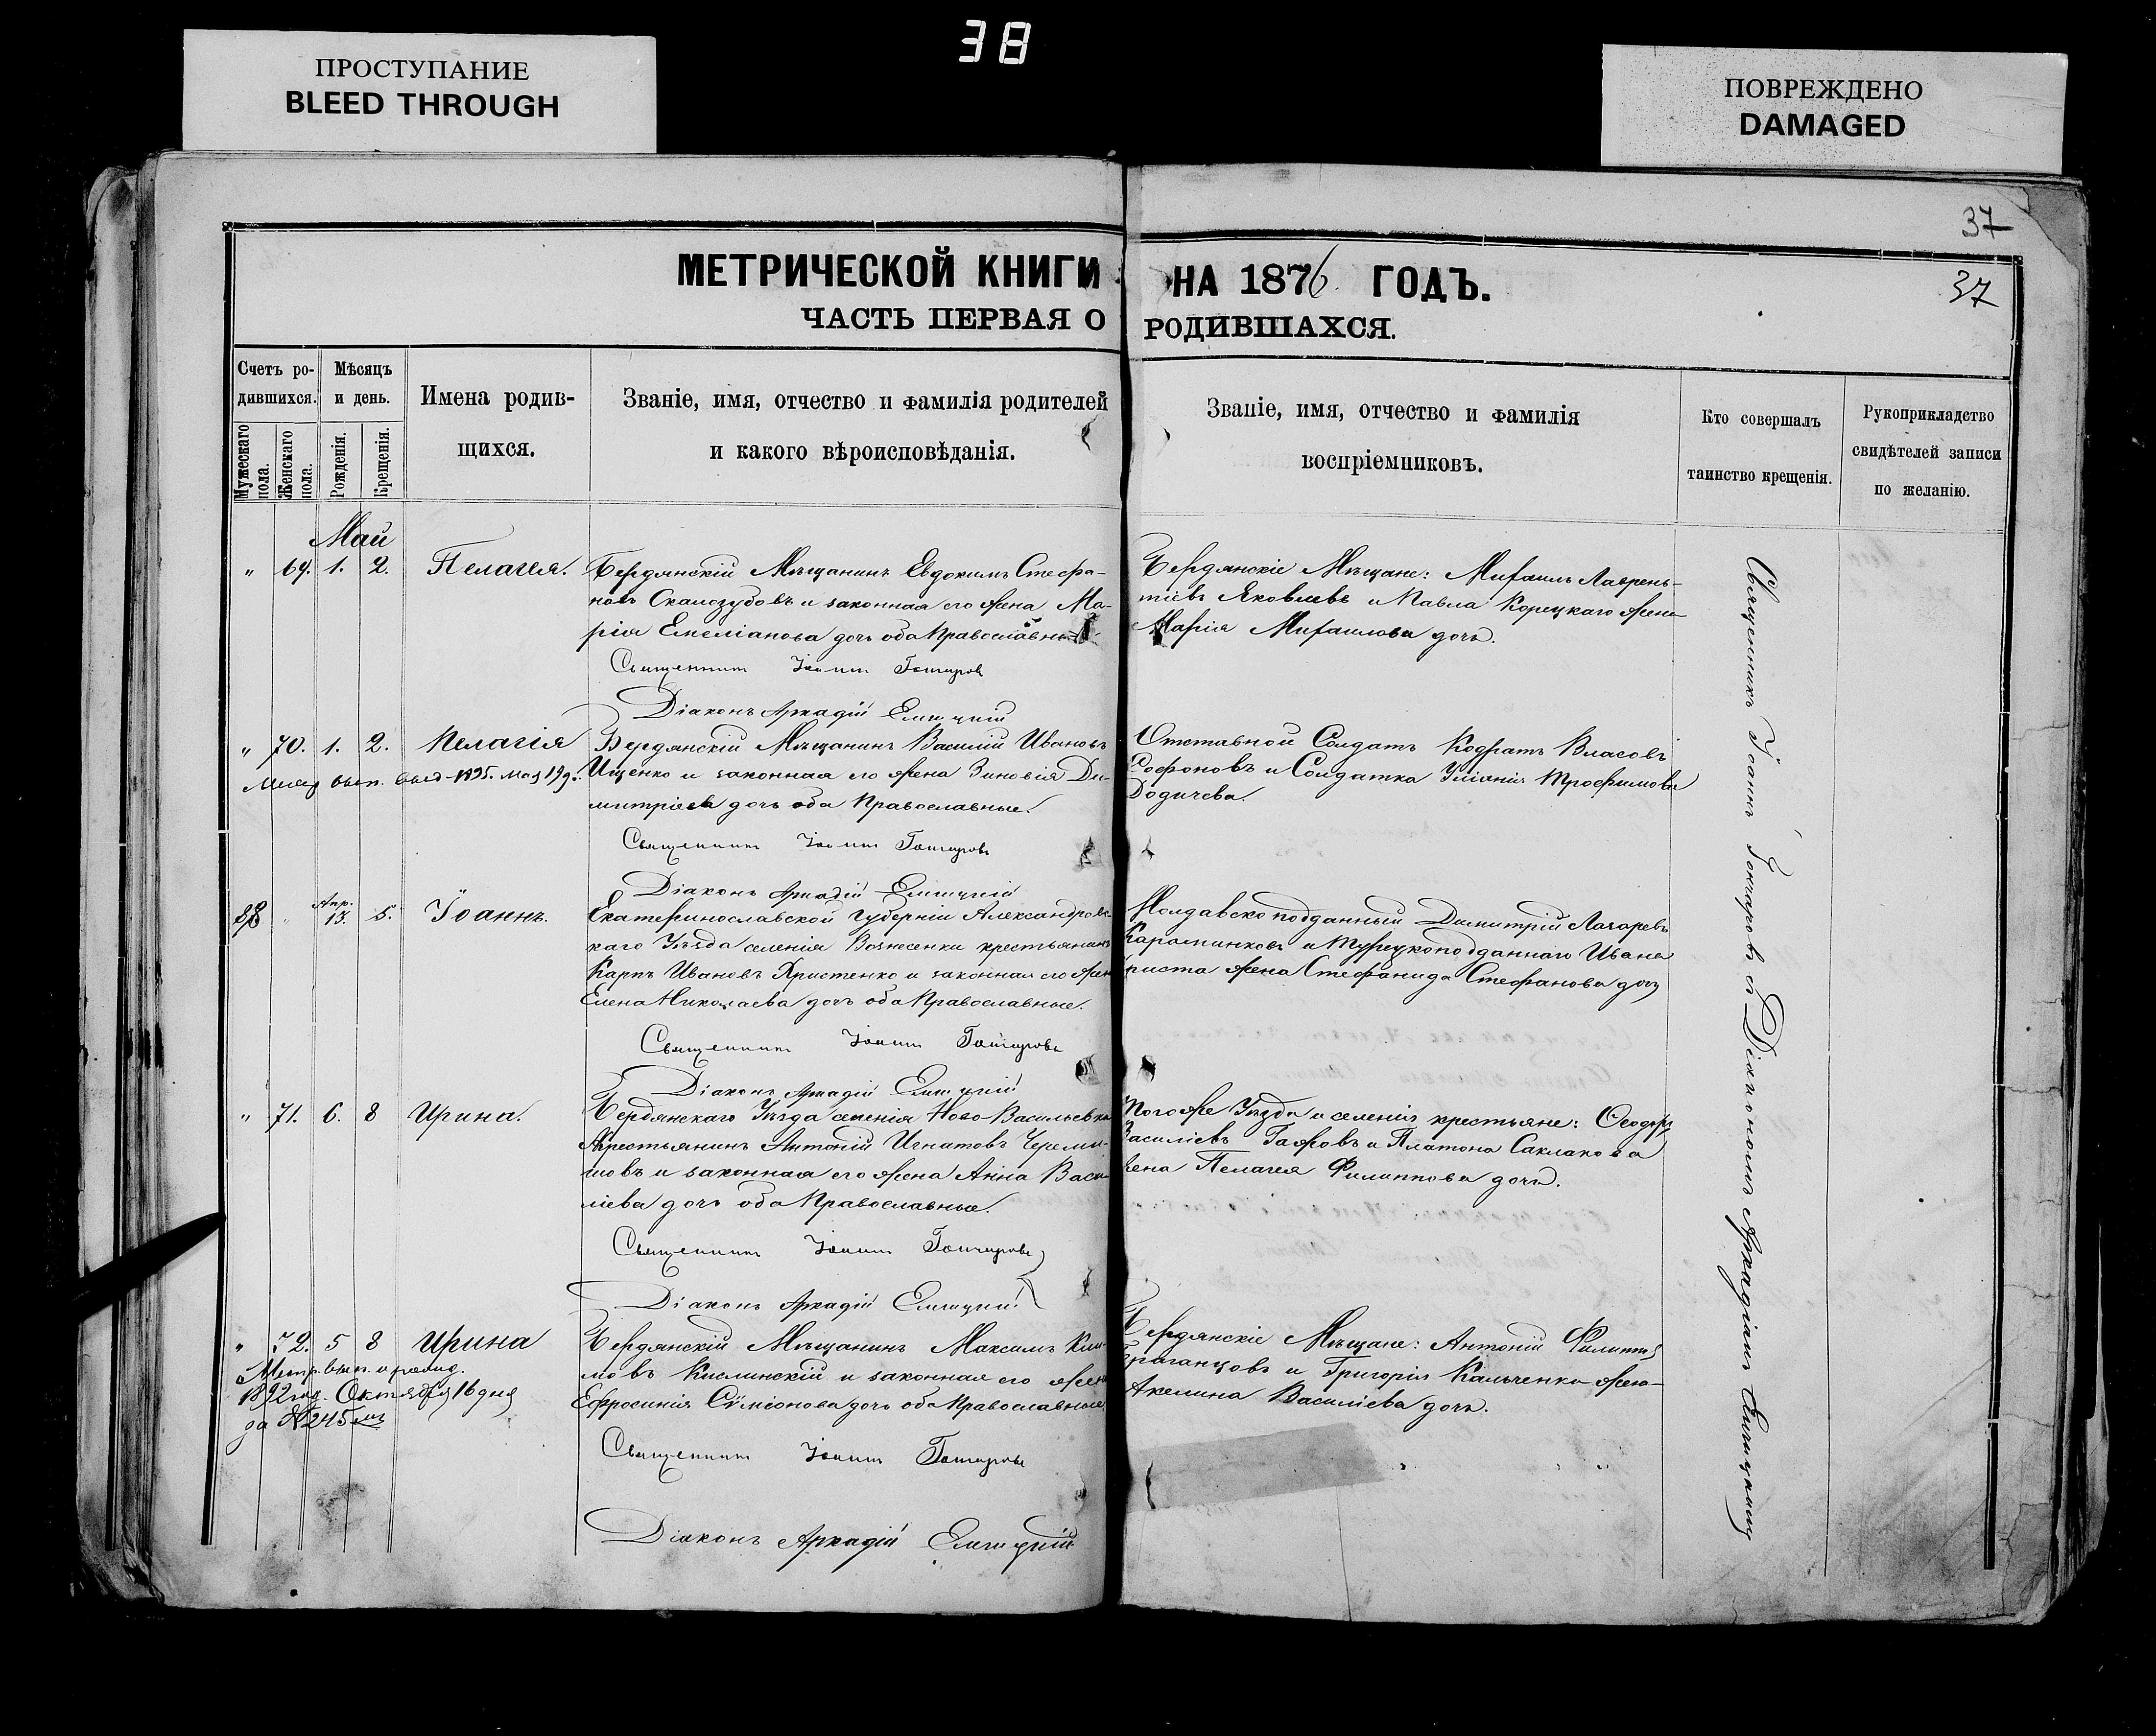 38
ПРОСТУПАНИЕ
BLEED THROUGH
ПОВРЕЖДЕНО
DAMAGED
37
37
МЕТРИЧЕСКОЙ КНИГИ НА 1876 ГОДЪ.
ЧАСТЬ ПЕРВАЯ О РОДИВШАХСЯ.
Счетъ ро-
дившихся.
Мужескаго пола.
Женскаго пола.
Мѣсяцъ
и день.
Рожденія.
Крещенія.
Имена родив-
шихся.
Званіе, имя, отчество и фамилія родителей
и какого вѣроисповѣданія.
Званіе, имя, отчество и фамилія
воспріемниковъ.
Кто совершалъ
таинство крещенія.
Рукоприкладство
свидѣтелей записи
по желанію.
Май
" 69. 1. 2. Пелагея.
Бердянскій Мѣщанинъ Евдокимъ Стефа-
новъ Скалозубовъ и законная его жена Ма-
рія Емеліанова дочь оба Православные.
Священникъ Іоаннъ Гончаровъ
Діаконъ Аркадій
Бердянскіе Мѣщане: Михаилъ Лаврень-
тіевъ Яковлевъ и Павла Корецкаго жена
Марія Михаилова дочь.
" 70. 1. 2. Пелагія
выд. 1895. мая 19 д.
Бердянскій Мѣщанинъ Василій Ивановъ
Ищенко и законная его жена Зиновія Ди-
митріева дочь оба Православные.
Священникъ Іоаннъ Гончаровъ
Діаконъ Аркадій
Отставной Солдатъ Кодратъ Власовъ
и Солдатка Уліанія Трофимова
Додичева.
38 " Апр. 13. 5. Іоаннъ.
Екатеринославской Губерніи Александровс-
каго Уѣзда селенія Вознесенки крестьянинъ
Карпъ Ивановъ Христенко и законная его жена
Елена Николаева дочь оба Православные.
Священникъ Іоаннъ Гончаровъ
Діаконъ Аркадій
Молдавскоподданный Димитрій Лазаревъ
и Турецкоподданнаго Ивана
Христа жена Стефанида Стефанова дочь
" 71. 6. 8 Ирина.
Бердянскаго Уѣзда селенія Ново-Васильевки
Крестьянинъ Антоній Игнатовъ Череми-
совъ и законная его жена Анна Васи-
ліева дочь оба Православные.
Священникъ Іоаннъ Гончаровъ
Діаконъ Аркадій
Того же Уѣзда и селенія крестьяне: Феодоръ
Василіевъ и Платона Саклакова
жена Пелагея Филиппова дочь.
" 72. 5 8 Ирина
Метр. вып.
1892 год. Октября 16 дня
за №245
Бердянскій Мѣщанинъ Максимъ Кли-
мовъ Кислинскій и законная его жена
Ефросинія Сѵміонова дочь оба Православные
Священникъ Іоаннъ Гончаровъ
Діаконъ Аркадій
Бердянскіе Мѣщане: Антоній Филипповъ
и Григорія Кальченка жена
Акелина Василіева дочь.
Священникъ Іоаннъ Гончаровъ съ Діакономъ Аркадіемъ